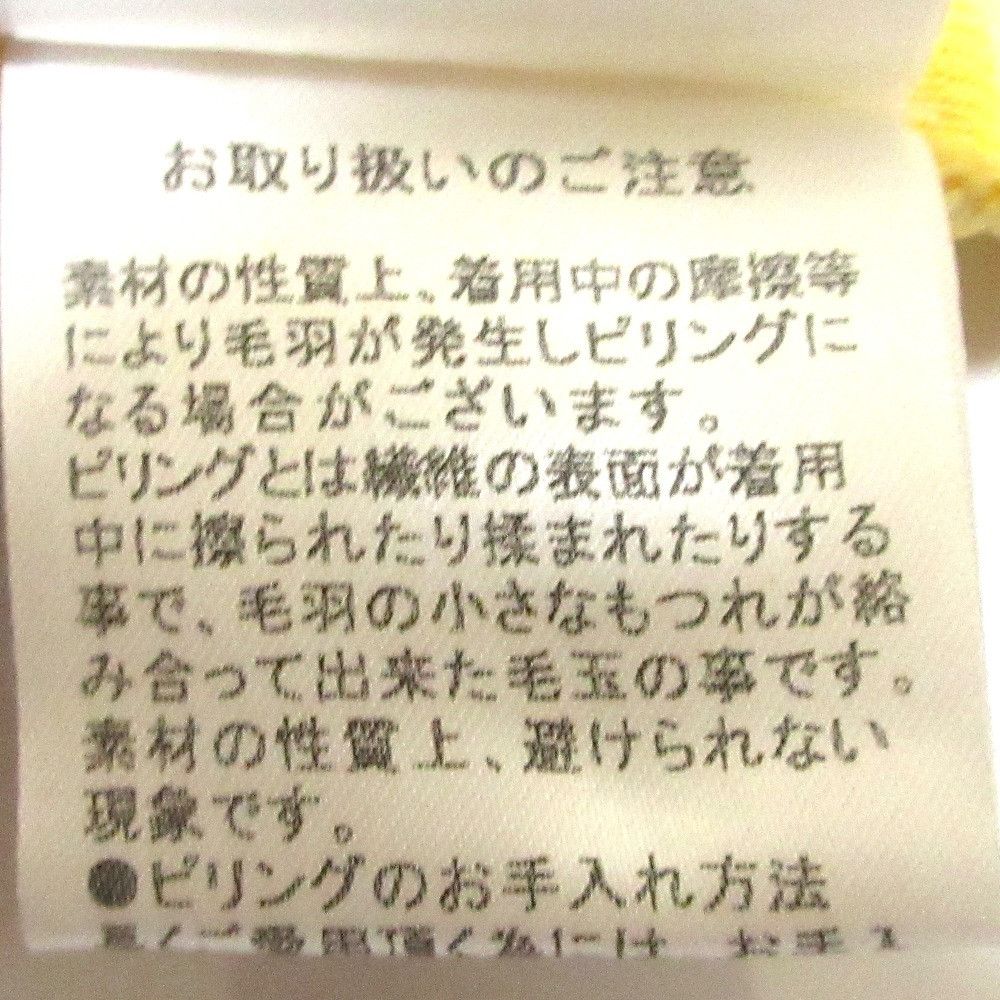 お取り扱いのご注意
素材の性質上、着用中の摩擦等
により毛羽が発生しピリングに
なる場合がございます。
ピリングとは繊維の表面が着用
中に擦られたり揉まれたりする
事で、毛羽の小さなもつれが絡
み合って出来た毛玉の事です。
素材の性質上、避けられない
現象です。
●ピリングのお手入れ方法
長くご愛用頂く為には、お手入